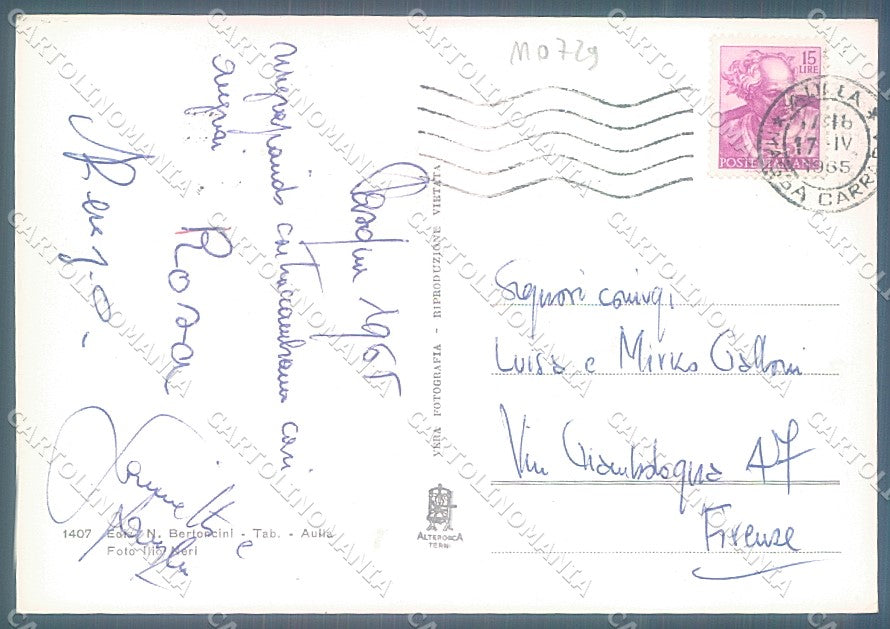 M0729
15
LIRE
POSTE ITALIANE
AULLA
17-18
17 -IV.
1965
MASSA CARRARA
Pasqua 1965
ringraziando contraccambiamo cari
auguri
Renzo.
Rosa
e
Signori coniugi
Luisa e Mirko Galloni
Via Giambologna 47
Firenze
VERA FOTOGRAFIA - RIPRODUZIONE VIETATA
ALTEROCCA
TERNI
1407 Ediz. N. Bertoncini - Tab. - Aulla
Foto Ilio Neri
CARTOLINOMANIA